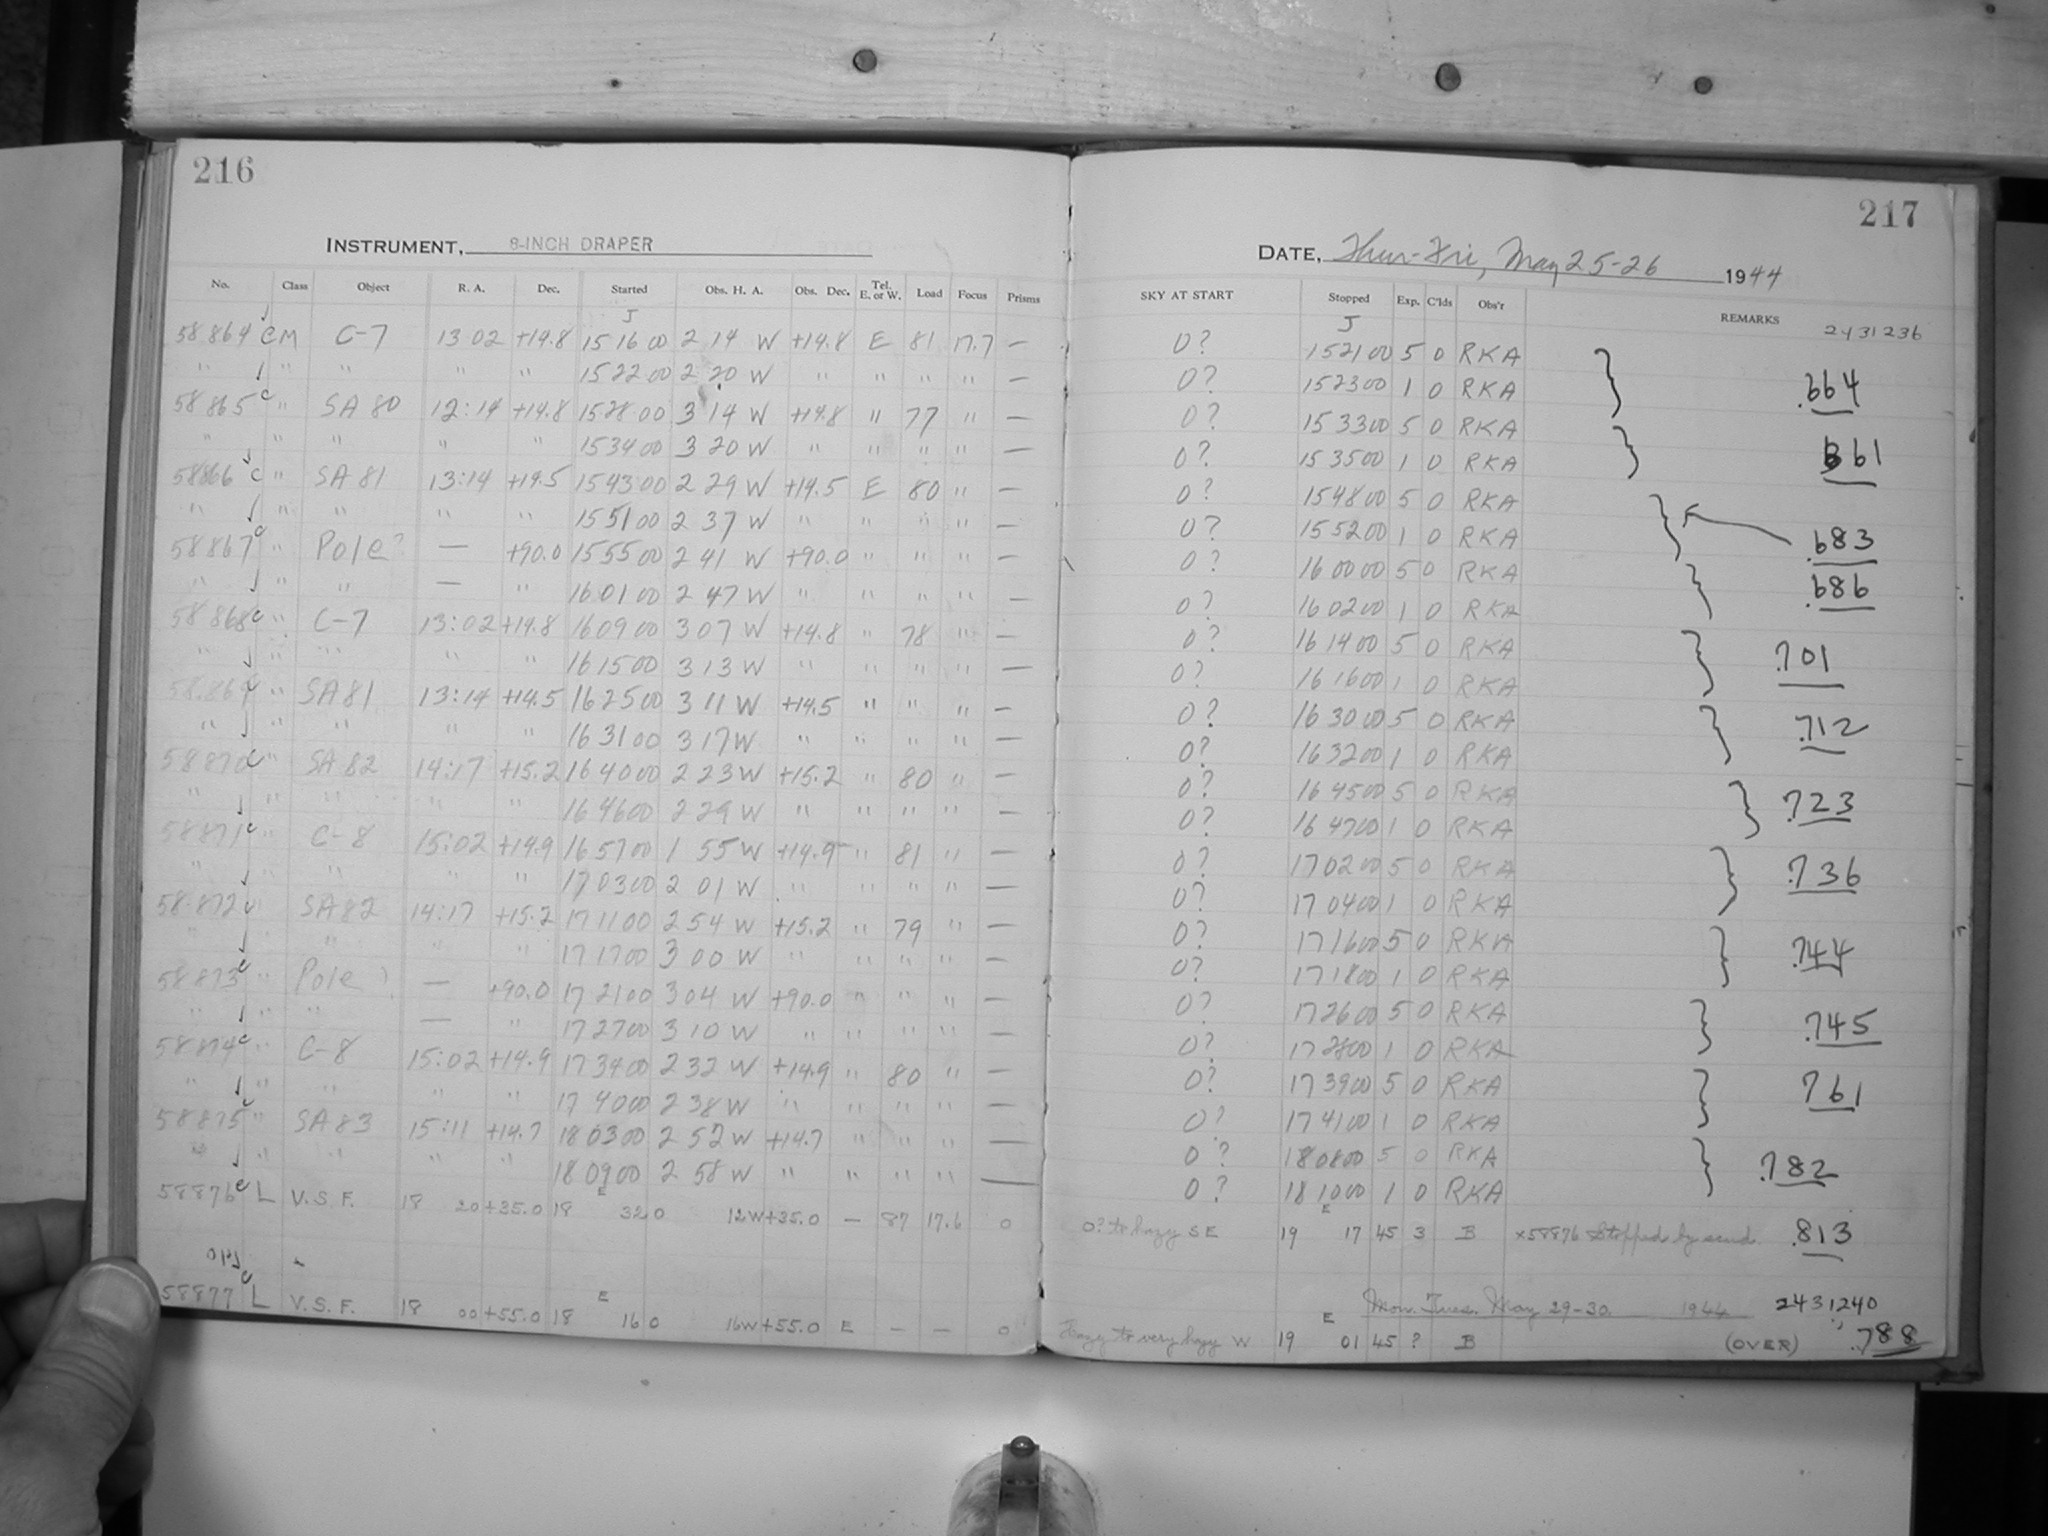 216
INSTRUMENT, 8-INCH DRAPER
No. Class Object R. A. Dec. Started Obs. H. A. Obs. Dec. Tel. E. or W. Load Focus Prisms
J
58864 c M C-7 13 02 +14.8 15 16 00 2 14 W +14.8 E 81 17.7 —
" " " " " 15 22 00 2 20 W " " " " —
58865 c " SA 80 12:14 +14.8 15 28 00 3 14 W +14.8 " 77 " —
" " " " " 15 34 00 3 20 W " " " " —
58866 c " SA 81 13:14 +14.5 15 43 00 2 29 W +14.5 E 80 " —
" " " " " 15 51 00 2 37 W " " " " —
58867 c " Pole? — +90.0 15 55 00 2 41 W +90.0 " " " —
" " " — " 16 01 00 2 47 W " " " " —
58868 c " C-7 13:02 +14.8 16 09 00 3 07 W +14.8 " 78 " —
" " " " " 16 15 00 3 13 W " " " " —
58869 c " SA 81 13:14 +14.5 16 25 00 3 11 W +14.5 " " " —
" " " " " 16 31 00 3 17 W " " " " —
58870 c " SA 82 14:17 +15.2 16 40 00 2 23 W +15.2 " 80 " —
" " " " " 16 46 00 2 29 W " " " " —
58871 c " C-8 15:02 +14.9 16 57 00 1 55 W +14.9 " 81 " —
" " " " " 17 03 00 2 01 W " " " " —
58872 c " SA 82 14:17 +15.2 17 11 00 2 54 W +15.2 " 79 " —
" " " " " 17 17 00 3 00 W " " " " —
58873 c " Pole? — +90.0 17 21 00 3 04 W +90.0 " " " —
" " " — " 17 27 00 3 10 W " " " " —
58874 c " C-8 15:02 +14.9 17 34 00 2 32 W +14.9 " 80 " —
" " " " " 17 40 00 2 38 W " " " " —
58875 c " SA 83 15:11 +14.7 18 03 00 2 52 W +14.7 " " " —
" " " " " 18 09 00 2 58 W " " " " —
E
58876 c L V.S.F. 18 20 +35.0 18 32 0 12W +35.0 — 87 17.6 0
E
58877 c L V.S.F. 18 00 +55.0 18 16 0 16W +55.0 E — — 0
217
DATE, Thur-Fri, May 25-26 1944
SKY AT START Stopped Exp. C'lds Obs'r REMARKS
J 2431236
0? 15 21 00 5 0 RKA
0? 15 23 00 1 0 RKA .664
0? 15 33 00 5 0 RKA
0? 15 35 00 1 0 RKA 661
0? 15 48 00 5 0 RKA
0? 15 52 00 1 0 RKA .683
0? 16 00 00 5 0 RKA
0? 16 02 00 1 0 RKA .686
0? 16 14 00 5 0 RKA
0? 16 16 00 1 0 RKA .701
0? 16 30 00 5 0 RKA
0? 16 32 00 1 0 RKA .712
0? 16 45 00 5 0 RKA
0? 16 47 00 1 0 RKA .723
0? 17 02 00 5 0 RKA
0? 17 04 00 1 0 RKA .736
0? 17 16 00 5 0 RKA
0? 17 18 00 1 0 RKA .744
0? 17 26 00 5 0 RKA
0? 17 28 00 1 0 RKA .745
0? 17 39 00 5 0 RKA
0? 17 41 00 1 0 RKA .761
0? 18 08 00 5 0 RKA
0? 18 10 00 1 0 RKA .782
E
0? to hazy SE 19 17 45 3 B x58876 Stopped by .813
Mon. Tues. May 29-30. 1944 2431240
E
Hazy to very hazy W 19 01 45 ? B (OVER) .788